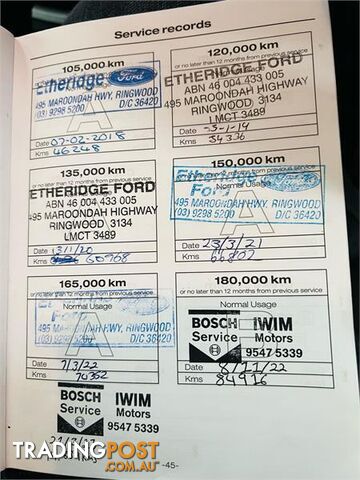 Service records
105,000 km
or no later than 12 months from previous service
Etheridge Ford
495 MAROONDAH HWY, RINGWOOD
(03) 9298 5200 D/C 36420
Date 07-02-2018
Kms 46248
120,000 km
or no later than 12 months from previous service
ETHERIDGE FORD
ABN 46 004 433 005
495 MAROONDAH HIGHWAY
RINGWOOD 3134
LMCT 3489
Date -3-1-19
Kms 54336
135,000 km
or no later than 12 months from previous service
ETHERIDGE FORD
ABN 46 004 433 005
495 MAROONDAH HIGHWAY
RINGWOOD 3134
LMCT 3489
Date 13/1/20
Kms 60908
150,000 km
or no later than 12 months from previous service
Normal Usage
Etheridge
Ford
495 MAROONDAH HWY, RINGWOOD
(03) 9298 5200 D/C 36420
Date 23/3/21
Kms 66802
165,000 km
or no later than 12 months from previous service
Normal Usage
Ford
495 MAROONDAH HWY, RINGWOOD
(03) 9298 5200 D/C 36420
Date 7/3/22
Kms 76352
180,000 km
or no later than 12 months from previous service
Normal Usage
BOSCH IWIM
Service Motors
9547 5339
Date 8/11/22
Kms 84916
BOSCH IWIM
Service Motors
9547 5339
TRADING POST
.COM.AU
-45-